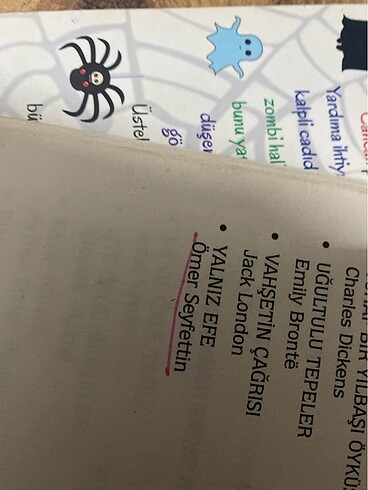 Yardıma
kalpli
zombi
bunu
düşer
gö
Üstel
bü
BİR YILBAŞI
Charles Dickens
• UĞULTULU TEPELER
Emily Brontë
• VAHŞETİN ÇAĞRISI
Jack London
• YALNIZ EFE
Ömer Seyfettin